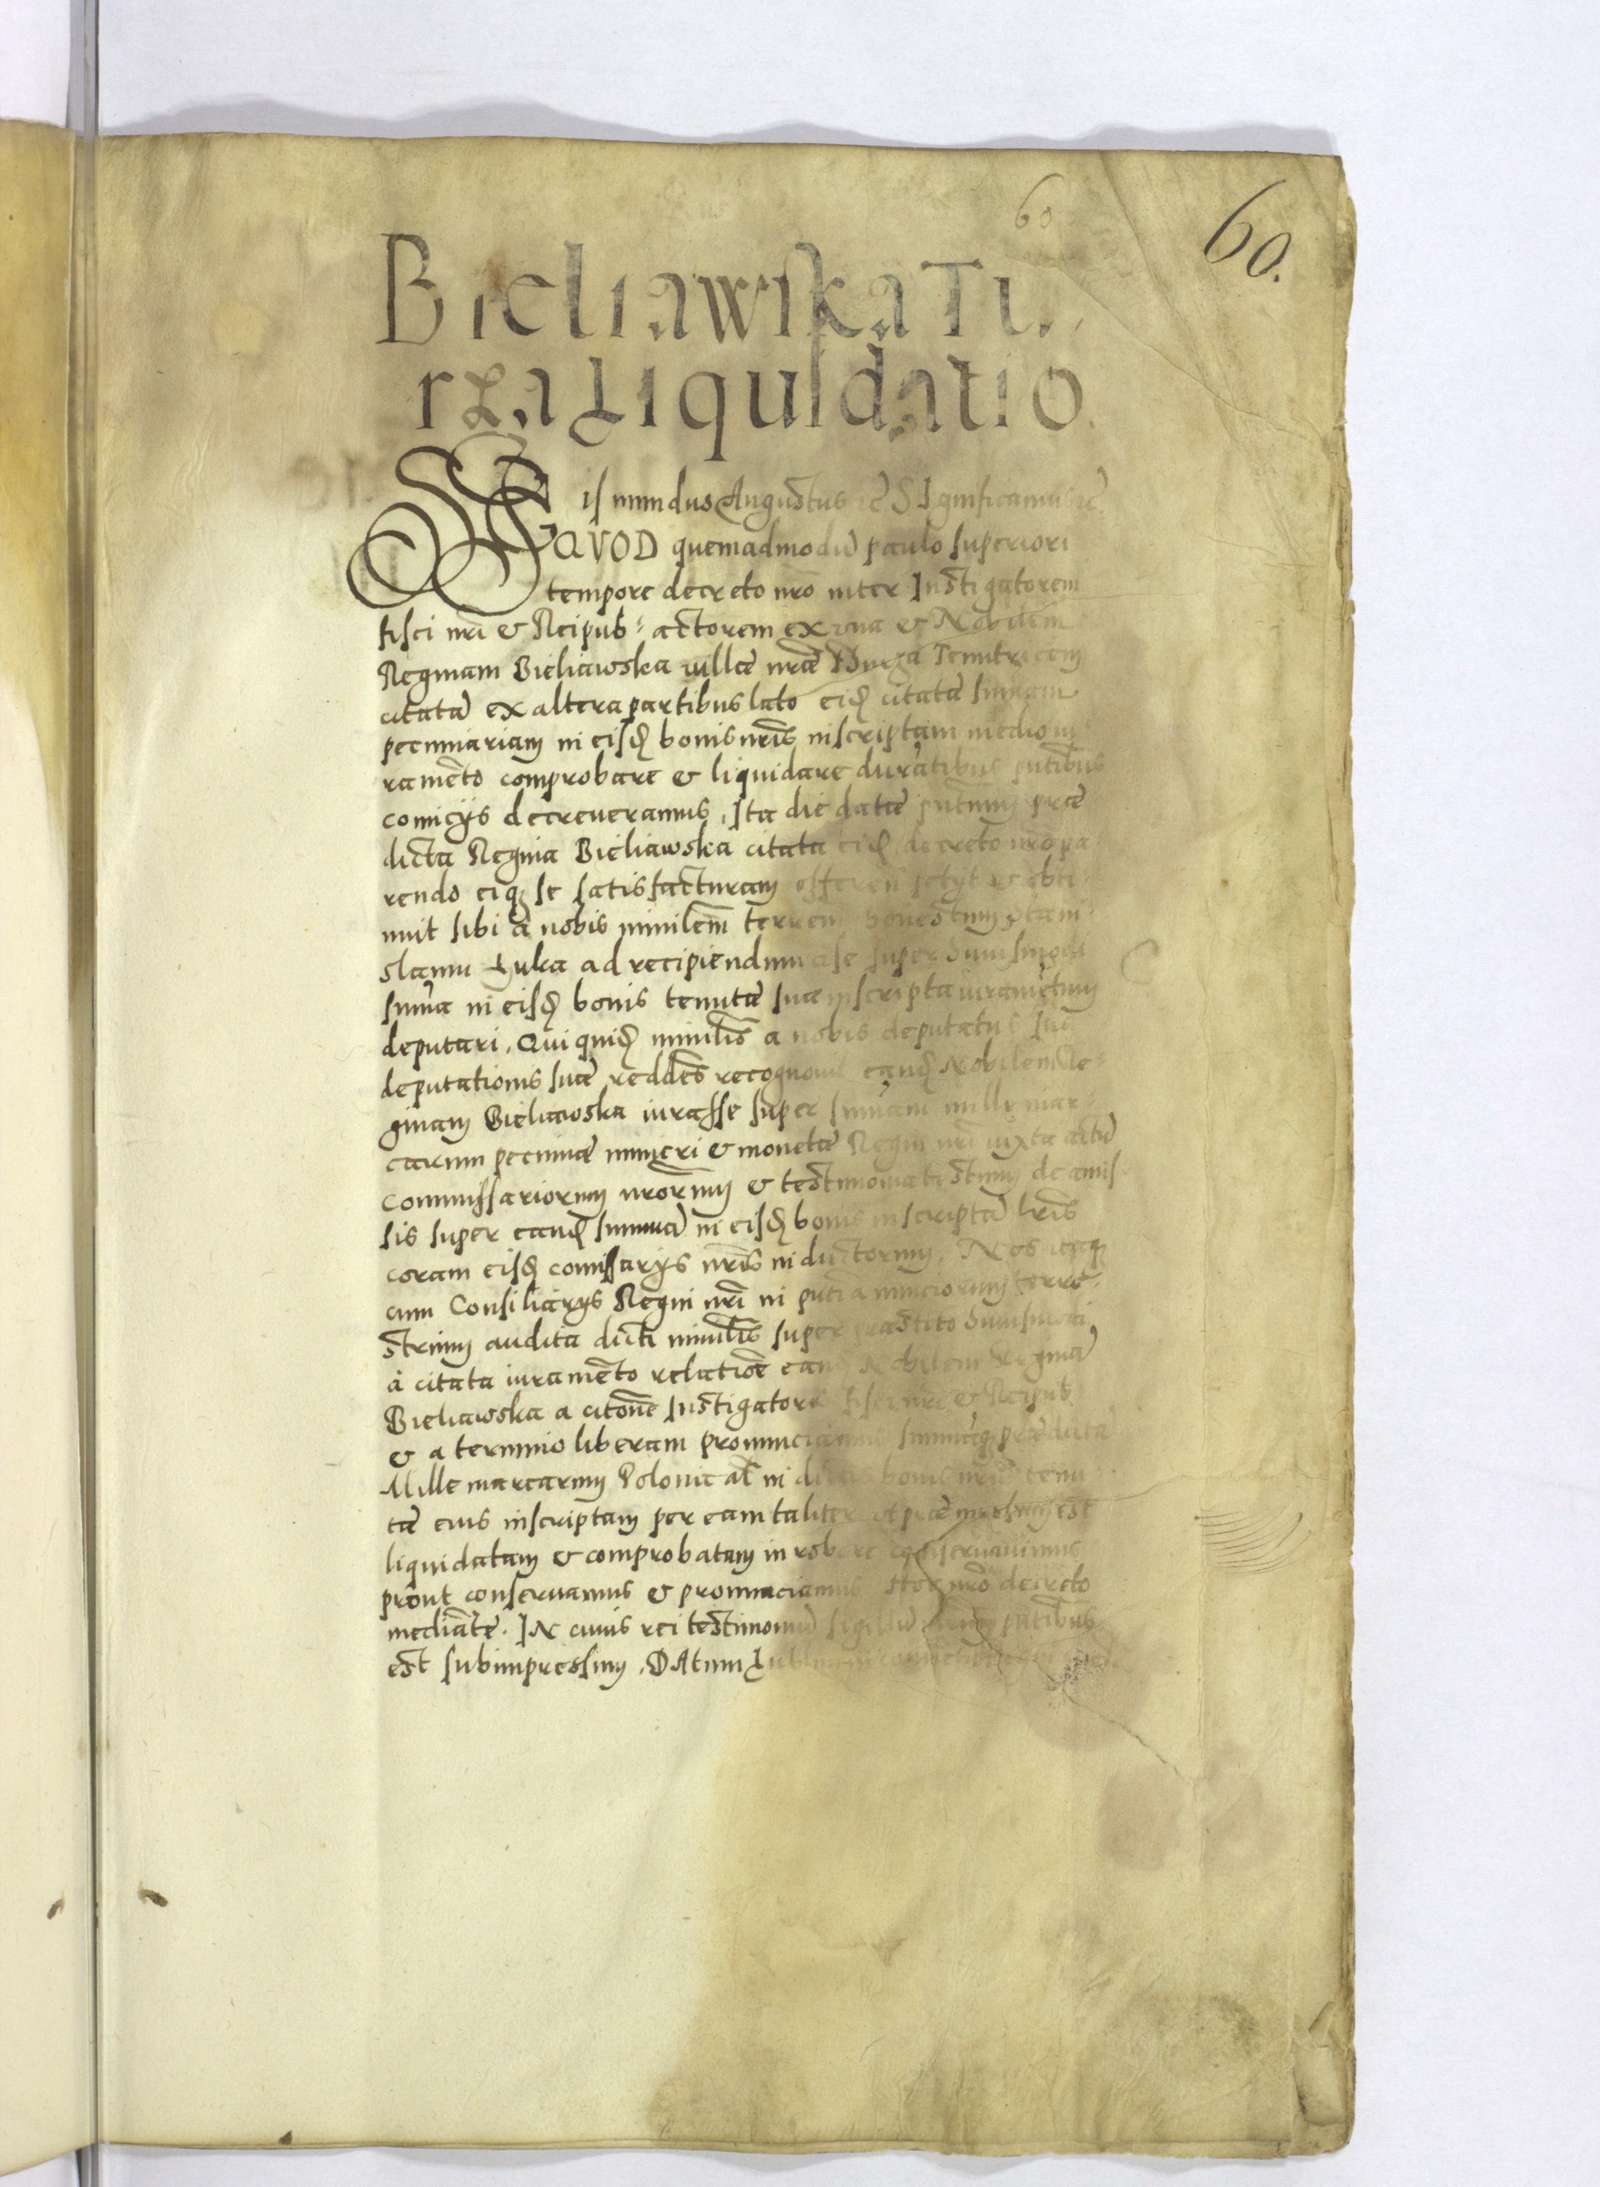 60
60.
Bieliawska Tu
rza Liquidatio.
Sigismundus Augustus rc̄ Significamus rc̄
QVOD quemadmodū paulo superiori
tempore decreto nrō inter Instigatorem
fisci nri & Reipub: actorem ex una & Nobilem
Reginam Bieliawska villæ nræ Turza Tenutricem
citatā ex altera partibus lato eidē citatæ summam
pecuniariam in eisdē bonis nris inscriptam medio iu
ramēto comprobare & liquidare durātibus pntibus
comicijs decreveramus, Ita die datæ pntium præ
dicta Regina Bieliawska citata eidē decreto nrō pa
rendo eiq; se satisfacturam offeren petyt & obti
nuit sibi a nobis similem terren honestum Stani
slaum Łuka ad recipiendum a se super huiusmodi
suma in eisdē bonis tenutæ suæ inscripta iuramētum
deputari. Qui quidē minlis a nobis deputatus
deputationis suæ reddens recognovit eandē Nobilem Re
ginam Bieliawska iurasse super sumam mille mar
carum pecuniæ numeri & monetæ Regni nri iuxta actū
Commissariorum nrorum & testimonia
sis super eandē summā in eisdē bonis inscriptā lris
coram eisdē comissarijs nris inductorum. Nos itaq;
cum Consiliarijs Regni nri in pntia nunciorum terre
strium audita dicti minlis super præstito huiusmodi
à citata iuramēto relatiōe eandē Nobilem Reginā
Bieliawska a citōne Instigatoris fisci nri & Reipub
& a termino liberam pronunciamus summāq; prædictā
Mille marcarum Polonical in dictis bonis nris tenu
tæ eius inscriptam per eam taliter ut præmissum est
liquidatam & comprobatam in robore conservavimus
prout conservamus & pronunciamus Hoc nrō decreto
mediāte. IN cuius rei testimoniū sigillū nrum pntibus
est subimpressum. DAtum Lublini